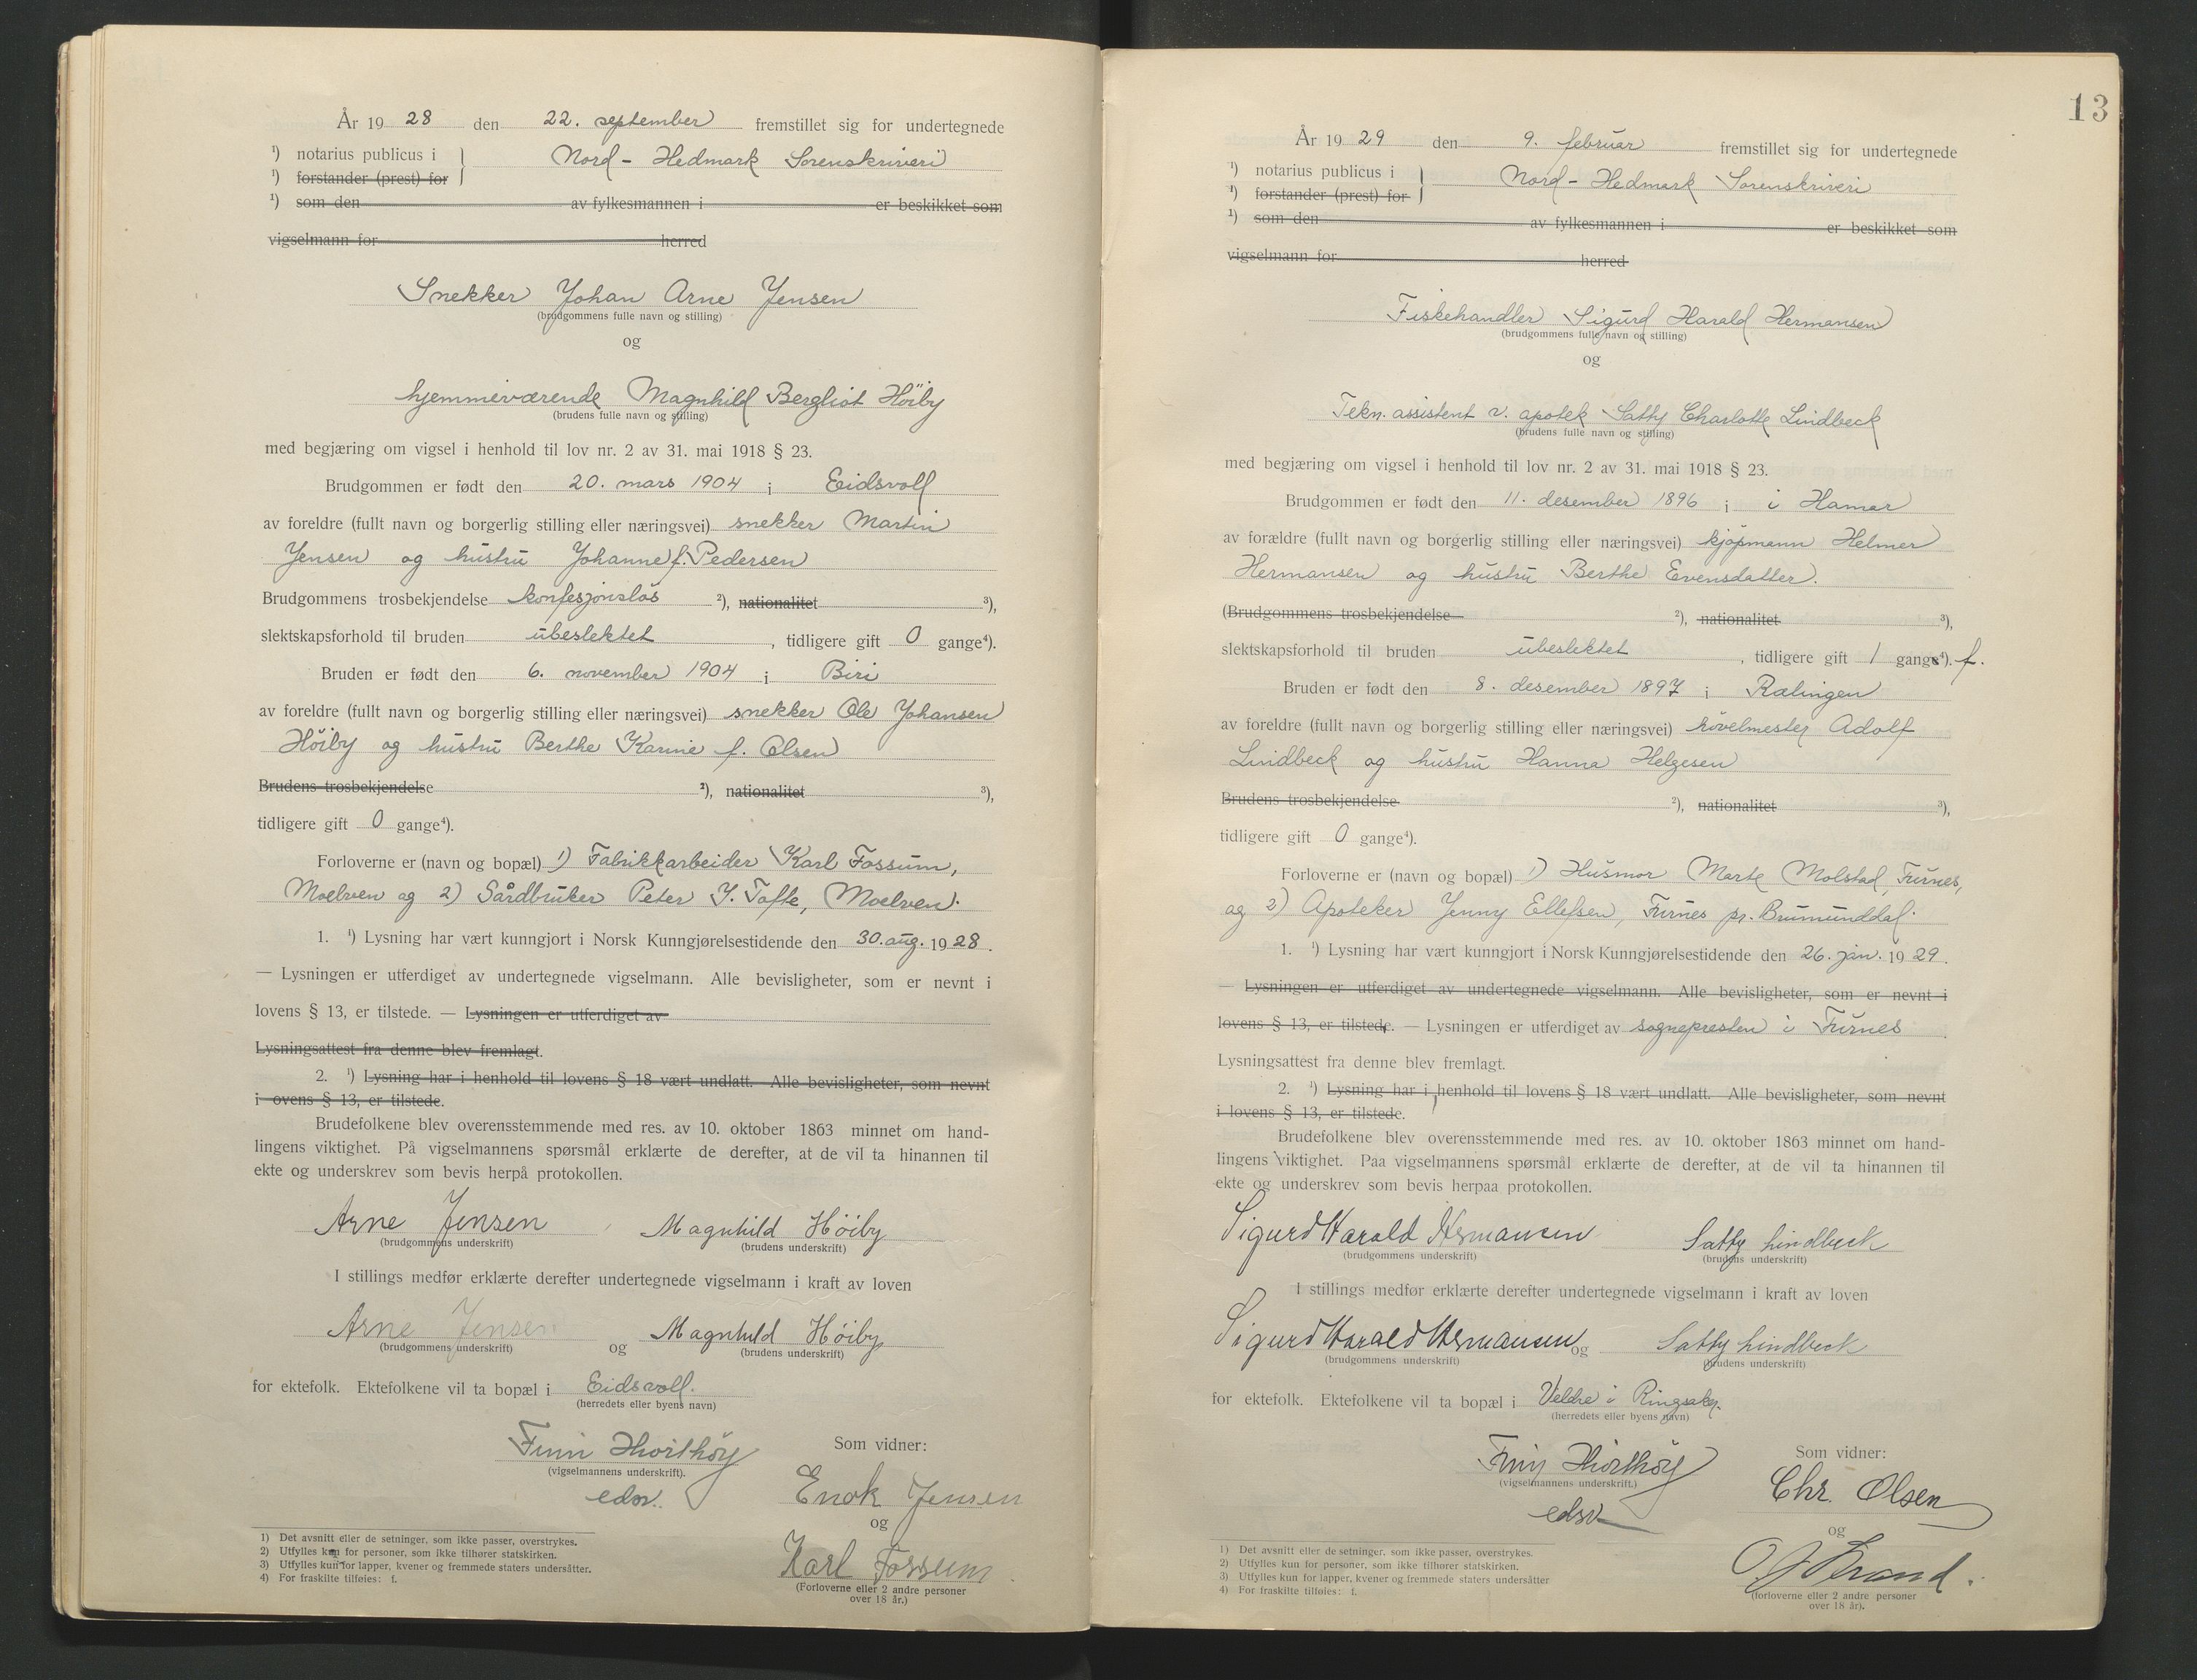 År 19 28 den 22. september fremstillet sig for undertegnede
¹) notarius publicus i } Nord - Hedmark Sorenskriveri
¹) forstander (prest) for
¹) som den av fylkesmannen i er beskikket som
vigselmann for herred
Snekker Johan Arne Jensen
(brudgommens fulle navn og stilling)
og
hjemmeværende Magnhild Bergliot Höiby
(brudens fulle navn og stilling)
med begjæring om vigsel i henhold til lov nr. 2 av 31. mai 1918 § 23.
Brudgommen er født den 20. mars 1904 i Eidsvoll
av foreldre (fullt navn og borgerlig stilling eller næringsvei) snekker Martin
Jensen og hustru Johanne f. Pedersen
Brudgommens trosbekjendelse konfesjonsløs ²), nationalitet ³),
slektskapsforhold til bruden ubeslektet, tidligere gift 0 gange⁴).
Bruden er født den 6. november 1904 i Biri
av foreldre (fullt navn og borgerlig stilling eller næringsvei) snekker Ole Johansen
Höiby og hustru Berthe Karine f. Olsen
Brudens trosbekjendelse ²), nationalitet ³),
tidligere gift 0 gange⁴).
Forloverne er (navn og bopæl) 1) Fabrikkarbeider Karl Fossum,
Moelven og 2) Gårdbruker Peter J. Tofte, Moelven.
1. ¹) Lysning har vært kunngjort i Norsk Kunngjørelsestidende den 30. aug. 19 28.
— Lysningen er utferdiget av undertegnede vigselmann. Alle bevisligheter, som er nevnt i
lovens § 13, er tilstede. — Lysningen er utferdiget av
Lysningsattest fra denne blev fremlagt.
2. ¹) Lysning har i henhold til lovens § 18 vært undlatt. Alle bevisligheter, som nevnt
i ovens § 13, er tilstede.
Brudefolkene blev overensstemmende med res. av 10. oktober 1863 minnet om hand-
lingens viktighet. På vigselmannens spørsmål erklærte de derefter, at de vil ta hinannen til
ekte og underskrev som bevis herpå protokollen.
Arne Jensen Magnhild Höiby
(brudgommens underskrift) (brudens underskrift)
I stillings medfør erklærte derefter undertegnede vigselmann i kraft av loven
Arne Jensen og Magnhild Höiby
(brudgommens underskrift) (brudens underskrift)
for ektefolk. Ektefolkene vil ta bopæl i Eidsvoll.
(herredets eller byens navn)
Finn Hiorthöy
(vigselmannens underskrift).
edsv.
Som vidner:
Enok Jensen
og
Karl Fossum
(Forloverne eller 2 andre personer
over 18 år.)
1) Det avsnitt eller de setninger, som ikke passer, overstrykes.
2) Utfylles kun for personer, som ikke tilhører statskirken.
3) Utfylles kun for lapper, kvener og fremmede staters undersåtter.
4) For fraskilte tilføies: f.
13
År 19 29 den 9. februar fremstillet sig for undertegnede
¹) notarius publicus i } Nord - Hedmark Sorenskriveri
¹) forstander (prest) for
¹) som den av fylkesmannen i er beskikket som
vigselmann for herred
Fiskehandler Sigurd Harald Hermansen
(brudgommens fulle navn og stilling)
og
Tekn. assistent v. apotek Satty Charlotte Lindbeck
(brudens fulle navn og stilling)
med begjæring om vigsel i henhold til lov nr. 2 av 31. mai 1918 § 23.
Brudgommen er født den 11. desember 1896 i i Hamar
av forældre (fullt navn og borgerlig stilling eller næringsvei) kjøpmann Helmer
Hermansen og hustru Berthe Evensdatter.
(Brudgommens trosbekjendelse ²), nationalitet ³),
slektskapsforhold til bruden ubeslektet, tidligere gift 1 gange⁴). f.
Bruden er født den 8. desember 1897 i Rælingen
av foreldre (fullt navn og borgerlig stilling eller næringsvei) hövelmester Adolf
Lindbeck og hustru Hanna Helgesen
Brudens trosbekjendelse ²), nationalitet ³),
tidligere gift 0 gange⁴).
Forloverne er (navn og bopæl) 1) Husmor Marte Molstad, Furnes,
og 2) Apoteker Jenny Ellefsen, Furnes pr. Brumunddal.
1. ¹) Lysning har vært kunngjort i Norsk Kunngjørelsestidende den 26. jan. 19 29.
— Lysningen er utferdiget av undertegnede vigselmann. Alle bevisligheter, som er nevnt i
lovens § 13, er tilstede. — Lysningen er utferdiget av sognepresten i Furnes
Lysningsattest fra denne blev fremlagt.
2. ¹) Lysning har i henhold til lovens § 18 vært undlatt. Alle bevisligheter, som nevnt
i lovens § 13, er tilstede.
Brudefolkene blev overensstemmende med res. av 10. oktober 1863 minnet om hand-
lingens viktighet. Paa vigselmannens spørsmål erklærte de derefter, at de vil ta hinannen til
ekte og underskrev som bevis herpaa protokollen.
Sigurd Harald Hermansen Satty Lindbeck
(brudgommens underskrift) (brudens underskrift)
I stillings medfør erklærte derefter undertegnede vigselmann i kraft av loven
Sigurd Harald Hermansen og Satty Lindbeck
(brudgommens underskrift) (brudens underskrift)
for ektefolk. Ektefolkene vil ta bopæl i Veldre i Ringsaker.
(herredets eller byens navn)
Finn Hiorthöy
(vigselmannens underskrift.)
edsv.
Som vidner:
Chr. Olsen
og
Strand.
(forloverne eller 2 andre personer
over 18 år).
1) Det avsnitt eller de setninger, som ikke passer, overstrykes.
2) Utfylles kun for personer, som ikke tilhører statskirken.
3) Utfylles kun for lapper, kvener og fremmede staters undersåtter
4) For fraskilte tilføies: f.